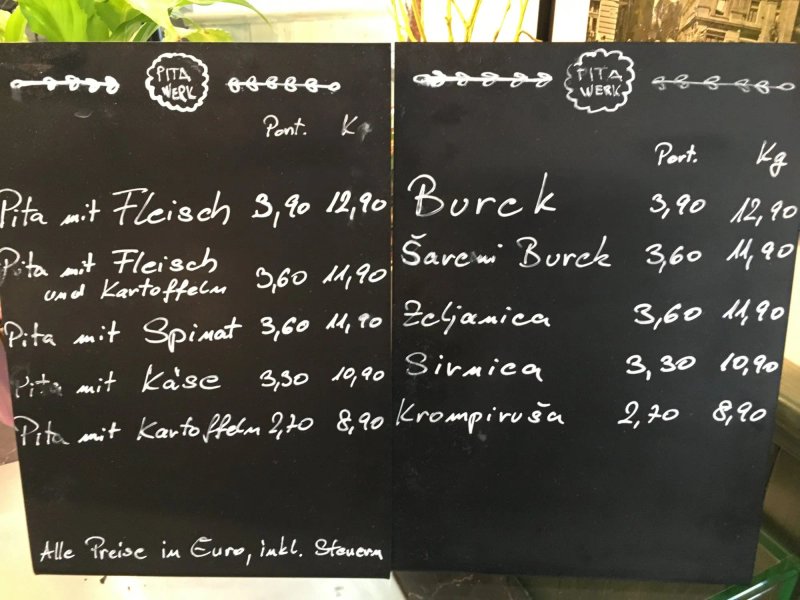 PITA
WERK
Port. Kg
Pita mit Fleisch 3,90 12,90
Pita mit Fleisch
und Kartoffeln 3,60 11,90
Pita mit Spinat 3,60 11,90
Pita mit Käse 3,30 10,90
Pita mit Kartoffeln 2,70 8,90
Alle Preise in Euro, inkl. Steuern
PITA
WERK
Port. Kg
Burek 3,90 12,90
Šareni Burek 3,60 11,90
Zeljanica 3,60 11,90
Sirnica 3,30 10,90
Krompiruša 2,70 8,90